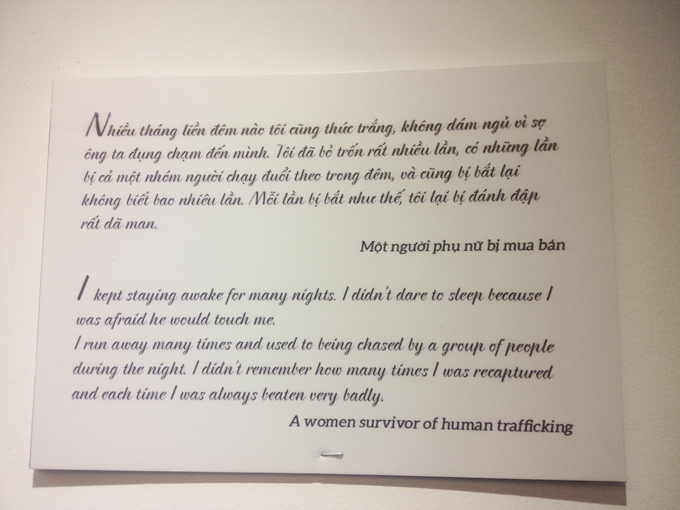 Nhiều tháng liền đêm nào tôi cũng thức trắng, không dám ngủ vì sợ
ông ta đụng chạm đến mình. Tôi đã bỏ trốn rất nhiều lần, có những lần
bị cả một nhóm người chạy đuổi theo trong đêm, và cũng bị bắt lại
không biết bao nhiêu lần. Mỗi lần bị bắt như thế, tôi lại bị đánh đập
rất dã man.
Một người phụ nữ bị mua bán
I kept staying awake for many nights. I didn't dare to sleep because I
was afraid he would touch me.
I run away many times and used to being chased by a group of people
during the night. I didn't remember how many times I was recaptured
and each time I was always beaten very badly.
A women survivor of human trafficking